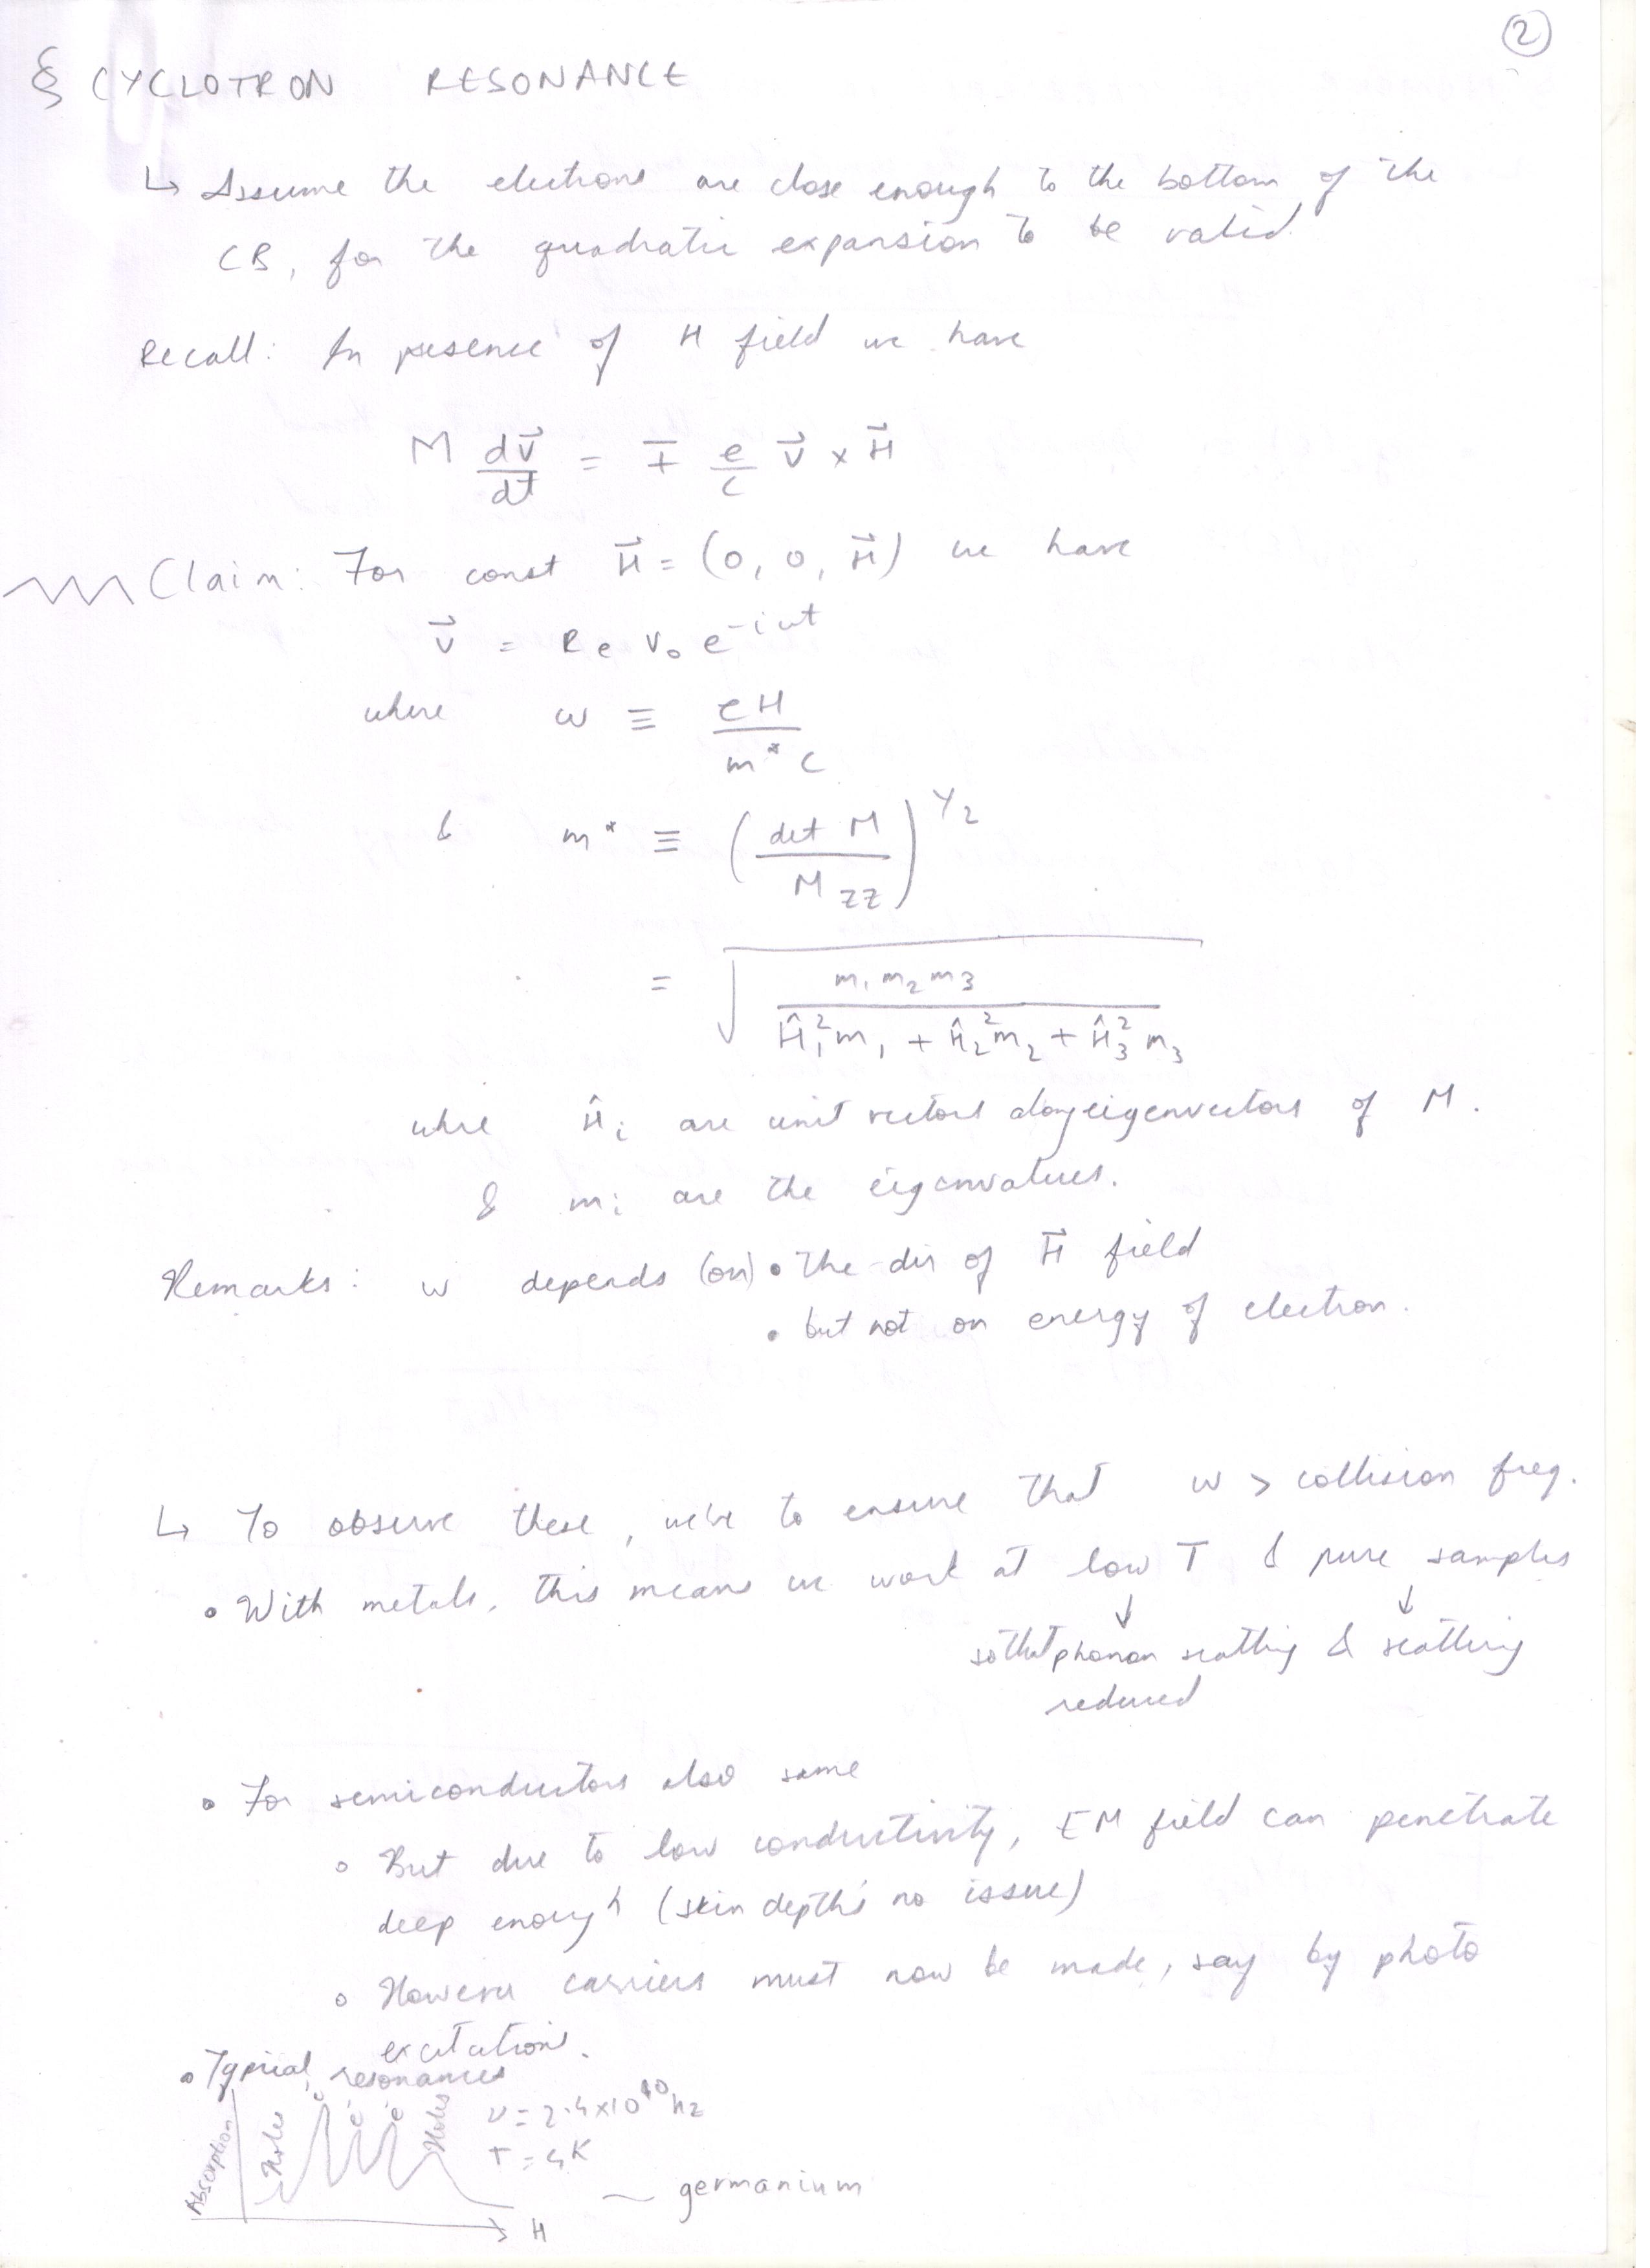 2
§ CYCLOTRON RESONANCE
↳ Assume the electrons are close enough to the bottom of the
CB, for the quadratic expansion to be valid.
Recall: In presence of H field we have
M dv⃗/dt = ∓ e/c v⃗ × H⃗
Claim: For const H⃗ = (0, 0, H⃗) we have
v⃗ = Re v₀ e^{-iωt}
where ω ≡ eH / m* c
& m* ≡ (det M / M_zz)^{1/2}
= √(m₁ m₂ m₃ / (Ĥ₁² m₁ + Ĥ₂² m₂ + Ĥ₃² m₃))
whre Ĥᵢ are unit vectors along eigenvectors of M.
& mᵢ are the eigenvalues.
Remarks: ω depends (on) • The dir of H⃗ field
• but not on energy of electron.
↳ To observe these, we've to ensure that ω > collision freq.
• With metals, this means we work at low T & pure samples
↓ ↓
so that phonon scatting & scattring
reduced
• For semiconductors also same
◦ But due to low conductivity, EM field can penetrate
deep enough (skin depth's no issue)
◦ However carriers must now be made, say by photo
excitations.
• Typical resonances
Absorption
Holes
e⁻ e⁻ e⁻
Holes
ν = 2.4×10¹⁰ hz
T = 4K
~ germanium
H